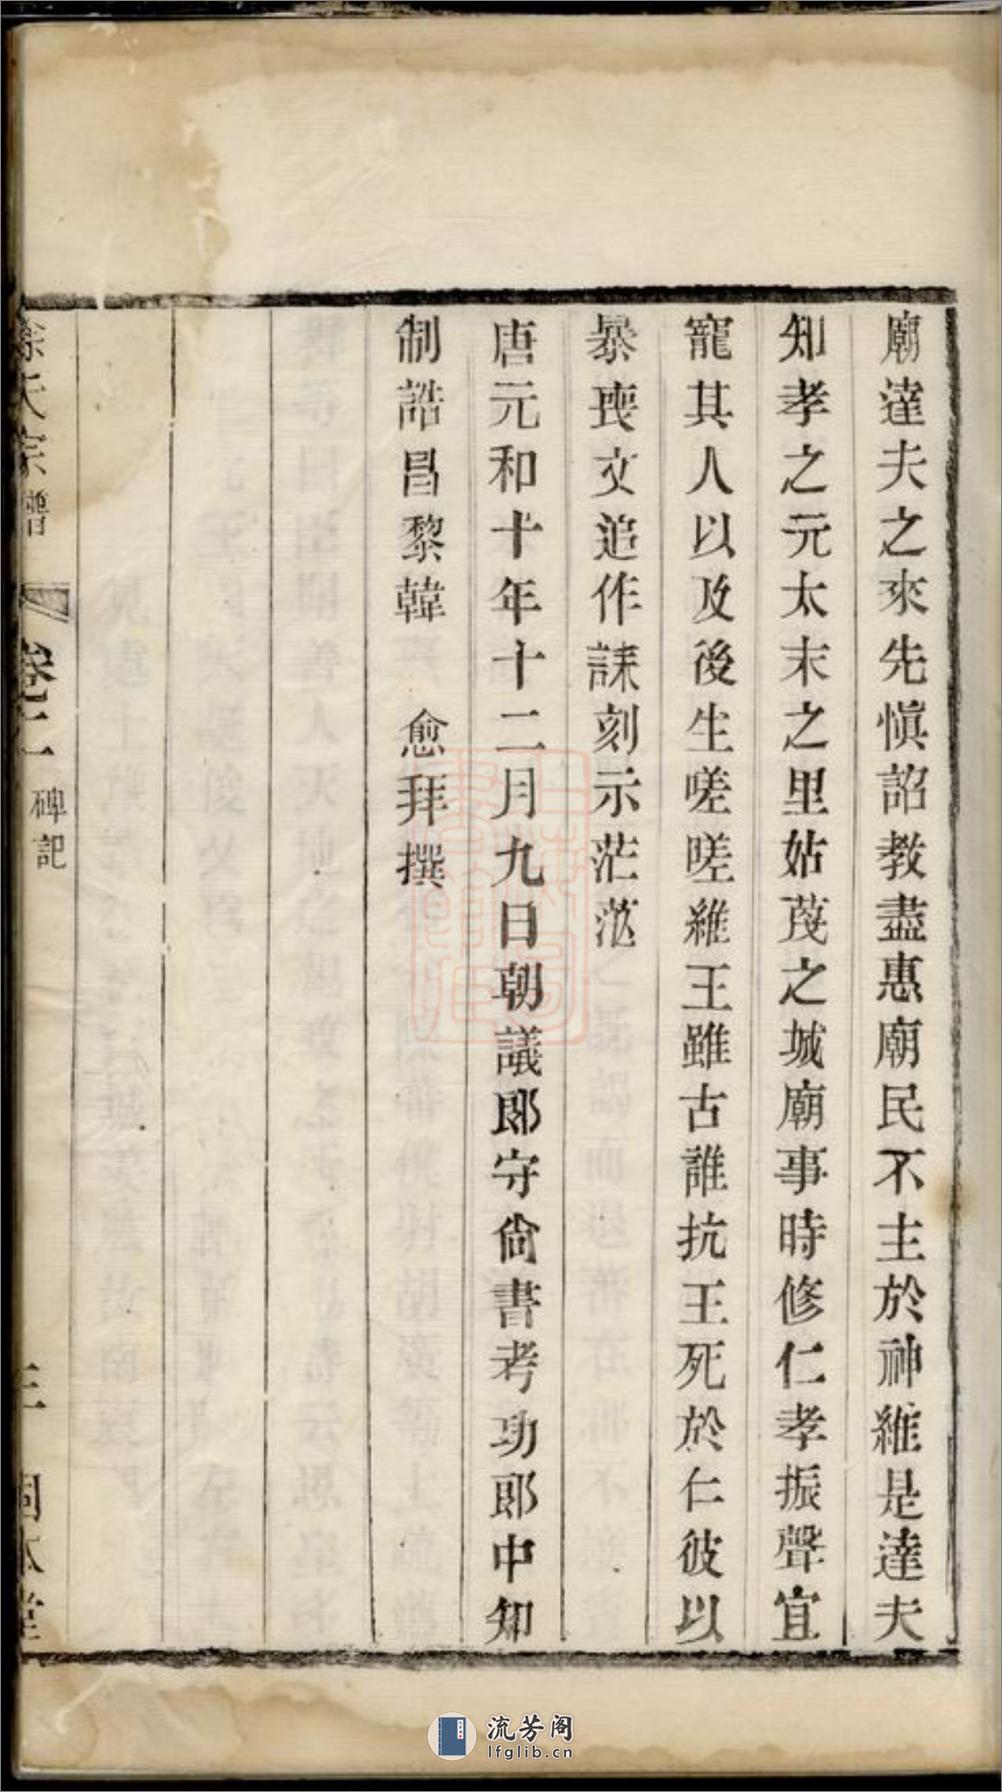 廟達夫之來先愼詔教盡惠廟民不主於神維是達夫
知孝之元太末之里姑蔑之城廟事時修仁孝振聲宜
寵其人以及後生嗟嗟維王雖古誰抗王死於仁彼以
暴喪文追作誄刻示茫茫
唐元和十年十二月九日朝議郎守尙書考功郎中知
制誥昌黎韓 愈拜撰
徐氏宗譜 卷之二 碑記 三 固本堂
流芳阁
lfglib.cn